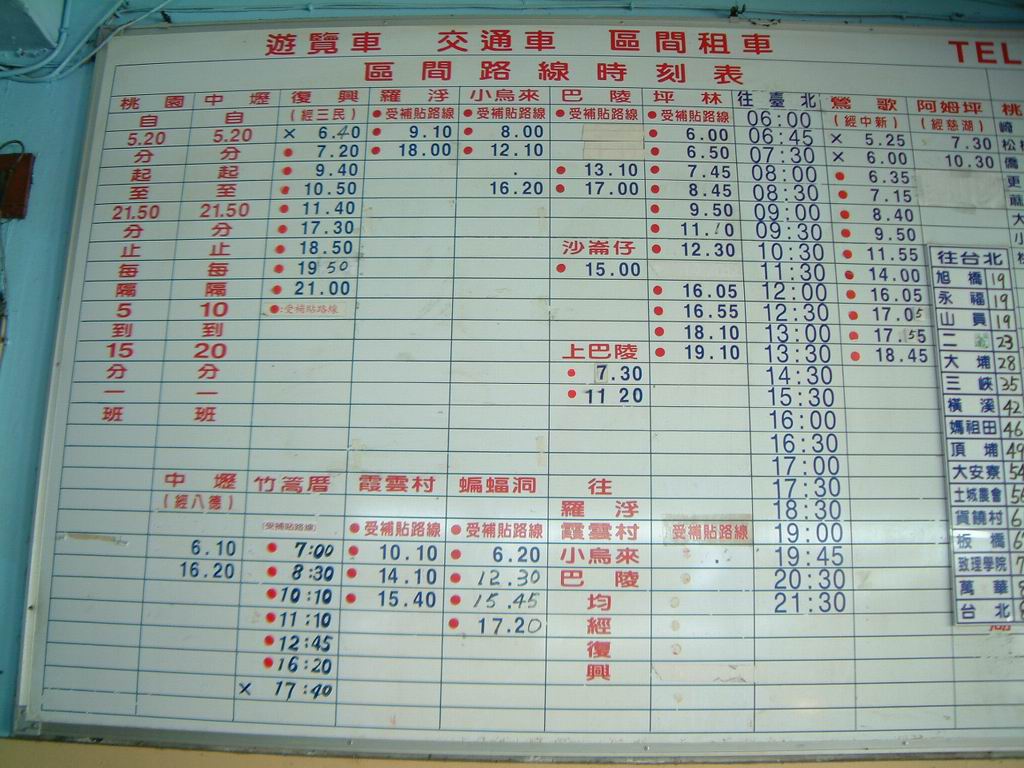 遊覽車 交通車 區間租車 TEL
區間路線時刻表
桃園 中壢 復興 羅浮 小烏來 巴陵 坪林 往臺北 鶯歌 阿姆坪 桃
自 自 (經三民) ●受補貼路線 ●受補貼路線 ●受補貼路線 ●受補貼路線 06:00 (經中新) (經慈湖)
5.20 5.20 × 6.40 ● 9.10 ● 8.00 ● 6.00 06:45 × 5.25 7.30
分 分 ● 7.20 ● 18.00 ● 12.10 ● 6.50 07:30 × 6.00 10.30
起 起 ● 9.40 ● 13.10 ● 7.45 08:00 ● 6.35
至 至 ● 10.50 16.20 ● 17.00 ● 8.45 08:30 ● 7.15
21.50 21.50 ● 11.40 ● 9.50 09:00 ● 8.40
分 分 ● 17.30 ● 11.10 09:30 ● 9.50
止 止 ● 18.50 沙崙仔 ● 12.30 10:30 ● 11.55
每 每 ● 19 50 ● 15.00 11:30 ● 14.00
隔 隔 ● 21.00 ● 16.05 12:00 ● 16.05
5 10 ●:受補貼路線 ● 16.55 12:30 ● 17.05
到 到 ● 18.10 13:00 ● 17.55
15 20 上巴陵 ● 19.10 13:30 ● 18.45
分 分 ● 7.30 14:30
一 一 ● 11 20 15:30
班 班 16:00
16:30
17:00
中壢 竹篙厝 霞雲村 蝙蝠洞 往 17:30
(經八德) 羅浮 18:30
(受補貼路線) ●受補貼路線 ●受補貼路線 霞雲村 受補貼路線 19:00
6.10 ● 7:00 ● 10.10 ● 6.20 小烏來 19:45
16.20 ● 8:30 ● 14.10 ● 12.30 巴陵 20:30
● 10:10 ● 15.40 ● 15.45 均 21:30
● 11:10 ● 17.20 經
● 12:45 復
● 16:20 興
× 17:40
往台北
旭橋 19
永福 19
山員 19
二 23
大埔 28
三峽 35
橫溪 42
媽祖田 46
頂埔 49
大安寮 54
土城農會
貨饒村
板橋
致理學院
萬華
台北